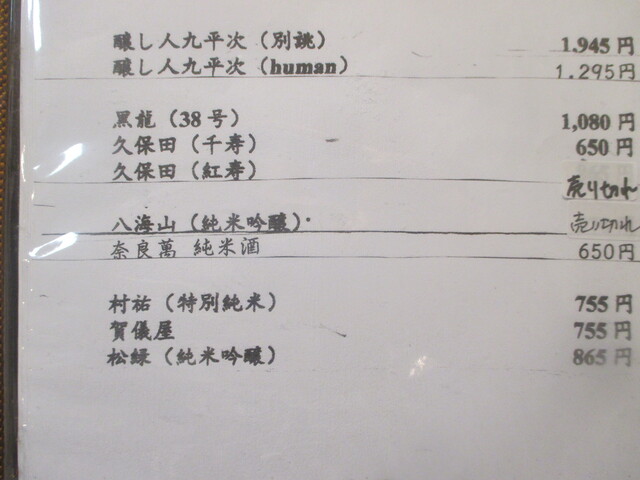 醸し人九平次（別誂） 1,945円
醸し人九平次（human） 1.295円
黒龍（38号） 1,080円
久保田（千寿） 650円
久保田（紅寿） 売り切れ
八海山（純米吟醸） 売り切れ
奈良萬 純米酒 650円
村祐（特別純米） 755円
賀儀屋 755円
松緑（純米吟醸） 865円